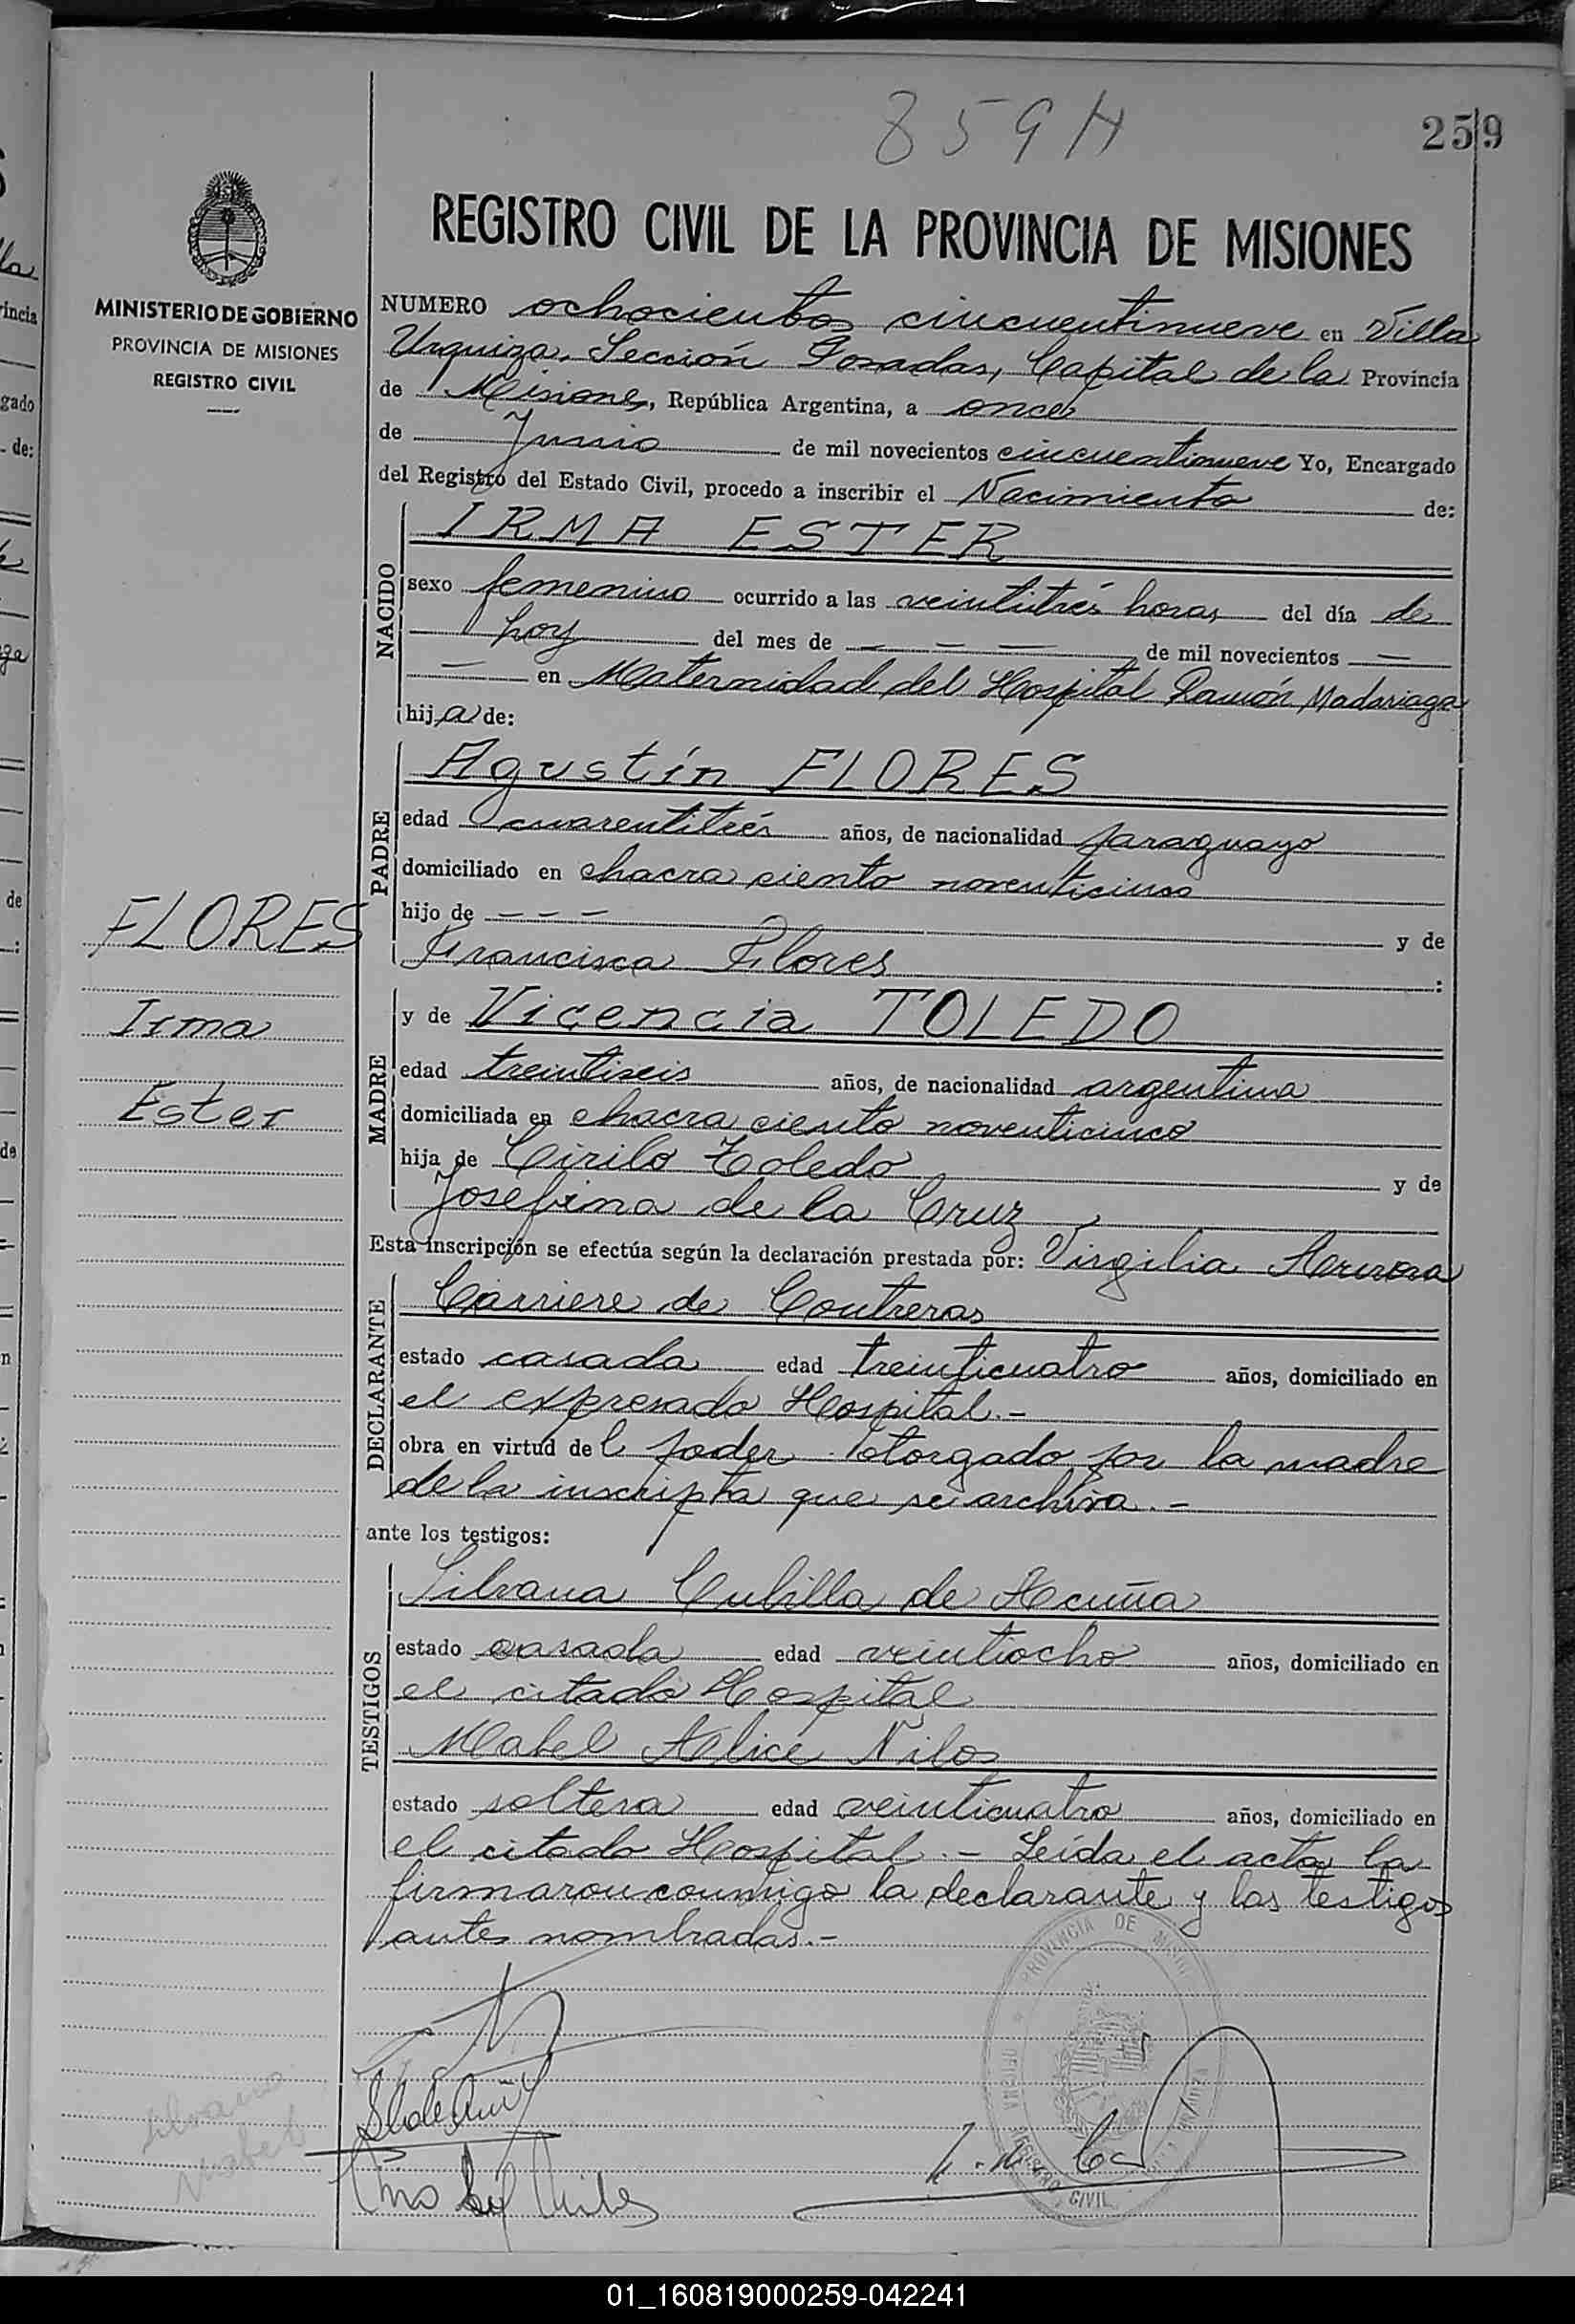 859 H
259
REGISTRO CIVIL DE LA PROVINCIA DE MISIONES
MINISTERIO DE GOBIERNO
PROVINCIA DE MISIONES
REGISTRO CIVIL
NUMERO ochocientos cincuentinueve en Villa
Urquiza, Sección Posadas, Capital de la Provincia
de Misiones, República Argentina, a once
de Junio de mil novecientos cincuentinueve Yo, Encargado
del Registro del Estado Civil, procedo a inscribir el Nacimiento de:
NACIDO
IRMA ESTER
sexo femenino ocurrido a las veintitrés horas del día de
hoy del mes de — — — de mil novecientos —
— en Maternidad del Hospital Ramón Madariaga
hija de:
PADRE
Agustín FLORES
edad cuarentitrés años, de nacionalidad paraguayo
domiciliado en chacra ciento noventicinco
hijo de — — — y de
Francisca Flores :
MADRE
y de Vicencia TOLEDO
edad treintiseis años, de nacionalidad argentina
domiciliada en chacra ciento noventicinco
hija de Cirilo Toledo y de
Josefina de la Cruz
Esta inscripción se efectúa según la declaración prestada por: Virgilia
DECLARANTE
Carriere de Contreras
estado casada edad treinticuatro años, domiciliado en
el expresado Hospital.-
obra en virtud del poder otorgado por la madre
de la inscripta que se archiva.-
ante los testigos:
TESTIGOS
Silvana Cubilla de Acuña
estado casada edad veintiocho años, domiciliado en
el citado Hospital
Mabel Alice Nilos
estado soltera edad veinticuatro años, domiciliado en
el citado Hospital.- Leída el acta la
firmaron conmigo la declarante y las testigos
antes nombradas.-
FLORES
Irma
Ester
Silvana
Mabel
PROVINCIA DE
REGISTRO CIVIL
01_160819000259-042241